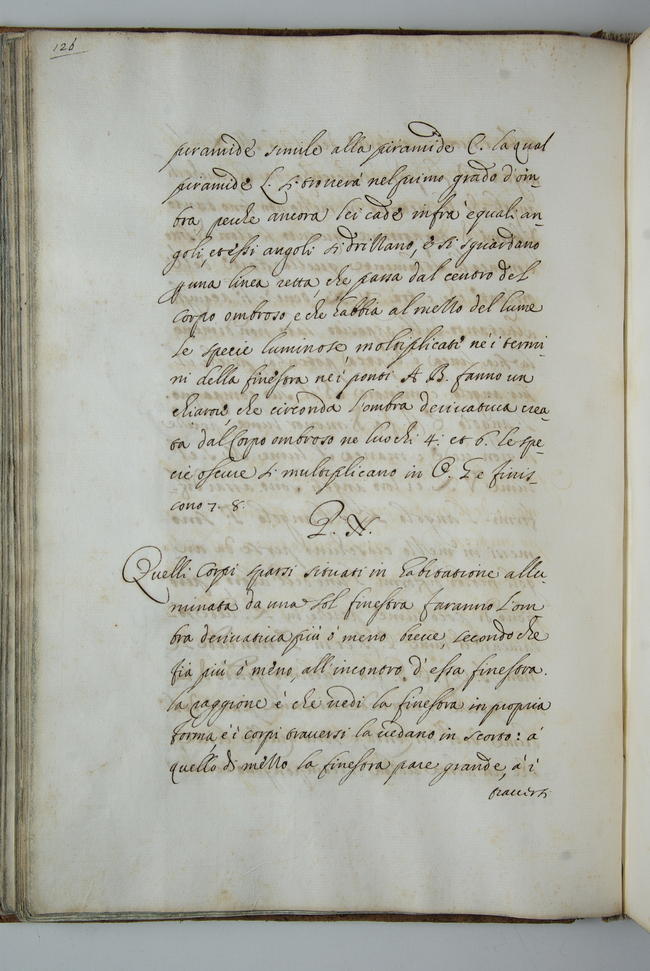 126
piramide simile alla piramide C. la qual
piramide L. si troverà nel primo grado d'om-
bra perche ancora lei cade infrà equali an-
goli, et essi angoli si drillano, e si sguardano
una linea retta, che passa dal centro del
Corpo ombroso, e che habbia al mezzo del lume
le specie luminose moltiplicate ne i termi-
ni della finestra ne i ponti A B. fanno un
chiaror, che circonda l'ombra derivativa crea-
ta dal Corpo ombroso ne luochi 4. et 6. le spe-
cie oscure si multiplicano in e finis-
cono 7. 8.
Quelli Corpi sparsi situati in habitatione allu-
minata da una sol finestra faranno l'om
bra derivativa più ò meno breve, secondo che
fia più ò meno, all'incontro d'essa finestra.
la raggione è che vedi la finestra in propria
forma, e i corpi traversi la vedano in scorto: a
quello di mezzo la finestra pare grande, à i
traversi